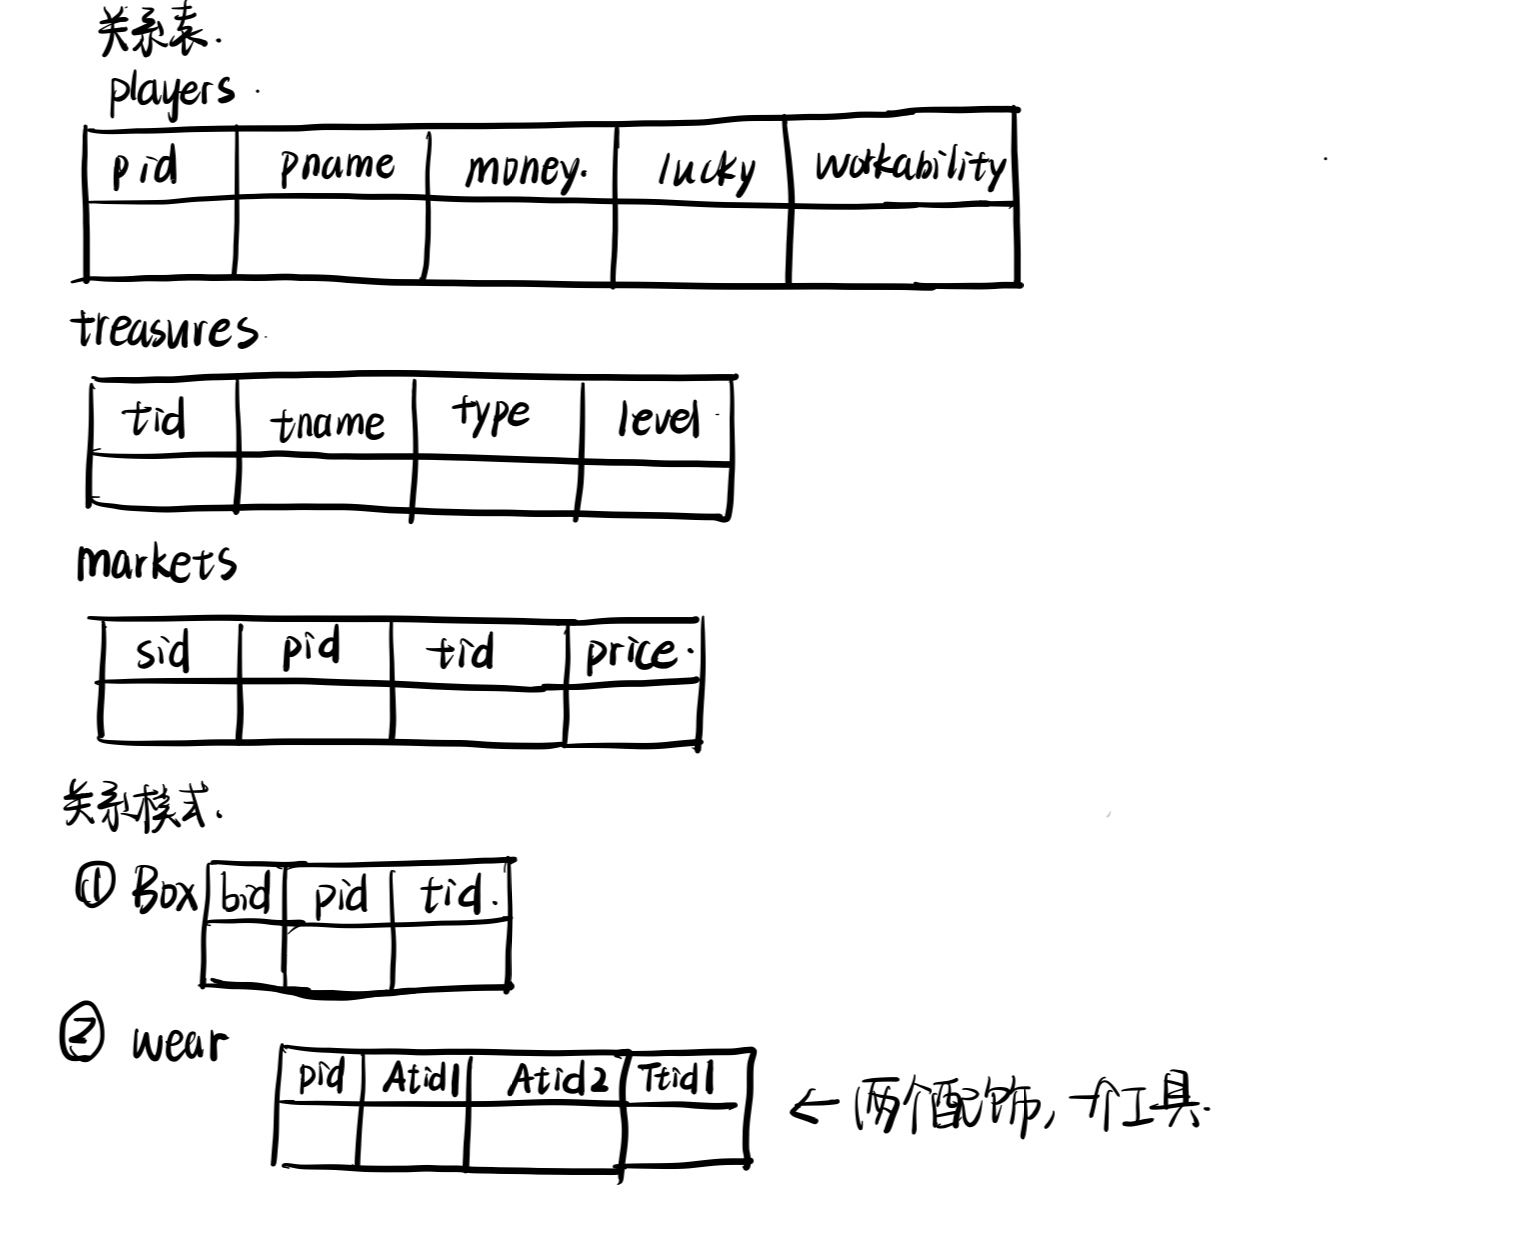 关系表.
players.
pid pname money. lucky workability
treasures.
tid tname type level
markets
sid pid tid price.
关系模式.
① Box bid pid tid.
② wear pid Atid1 Atid2 Ttid1 ← 两个配饰,一个工具.